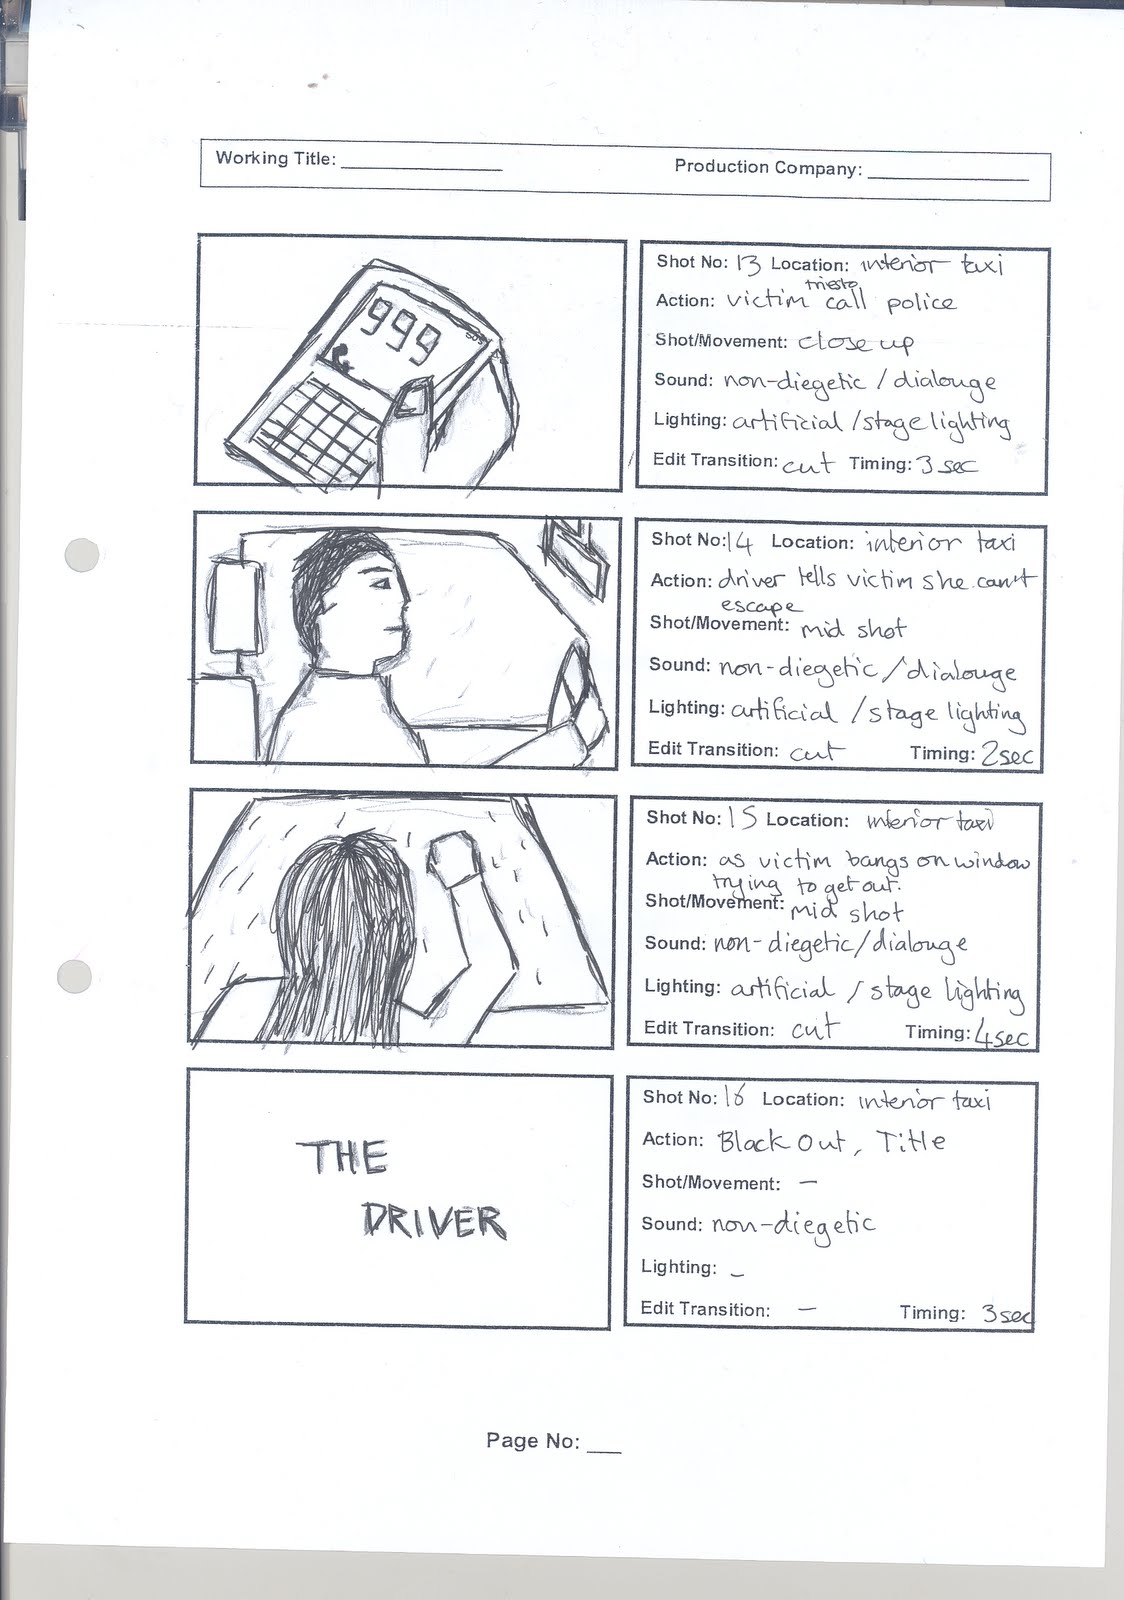 Working Title: ____________ Production Company: ____________
999
SOS
Shot No: 13 Location: interior taxi
Action: victim triesto call police
Shot/Movement: close up
Sound: non-diegetic / dialouge
Lighting: artificial / stage lighting
Edit Transition: cut Timing: 3 sec
Shot No: 14 Location: interior taxi
Action: driver tells victim she can't
escape
Shot/Movement: mid shot
Sound: non-diegetic / dialouge
Lighting: artificial / stage lighting
Edit Transition: cut Timing: 2sec
Shot No: 15 Location: interior taxi
Action: as victim bangs on window
trying to get out.
Shot/Movement: mid shot
Sound: non-diegetic/dialouge
Lighting: artificial / stage lighting
Edit Transition: cut Timing: 4sec
THE
DRIVER
Shot No: 16 Location: interior taxi
Action: Black Out, Title
Shot/Movement: –
Sound: non-diegetic
Lighting: –
Edit Transition: – Timing: 3sec
Page No: ___